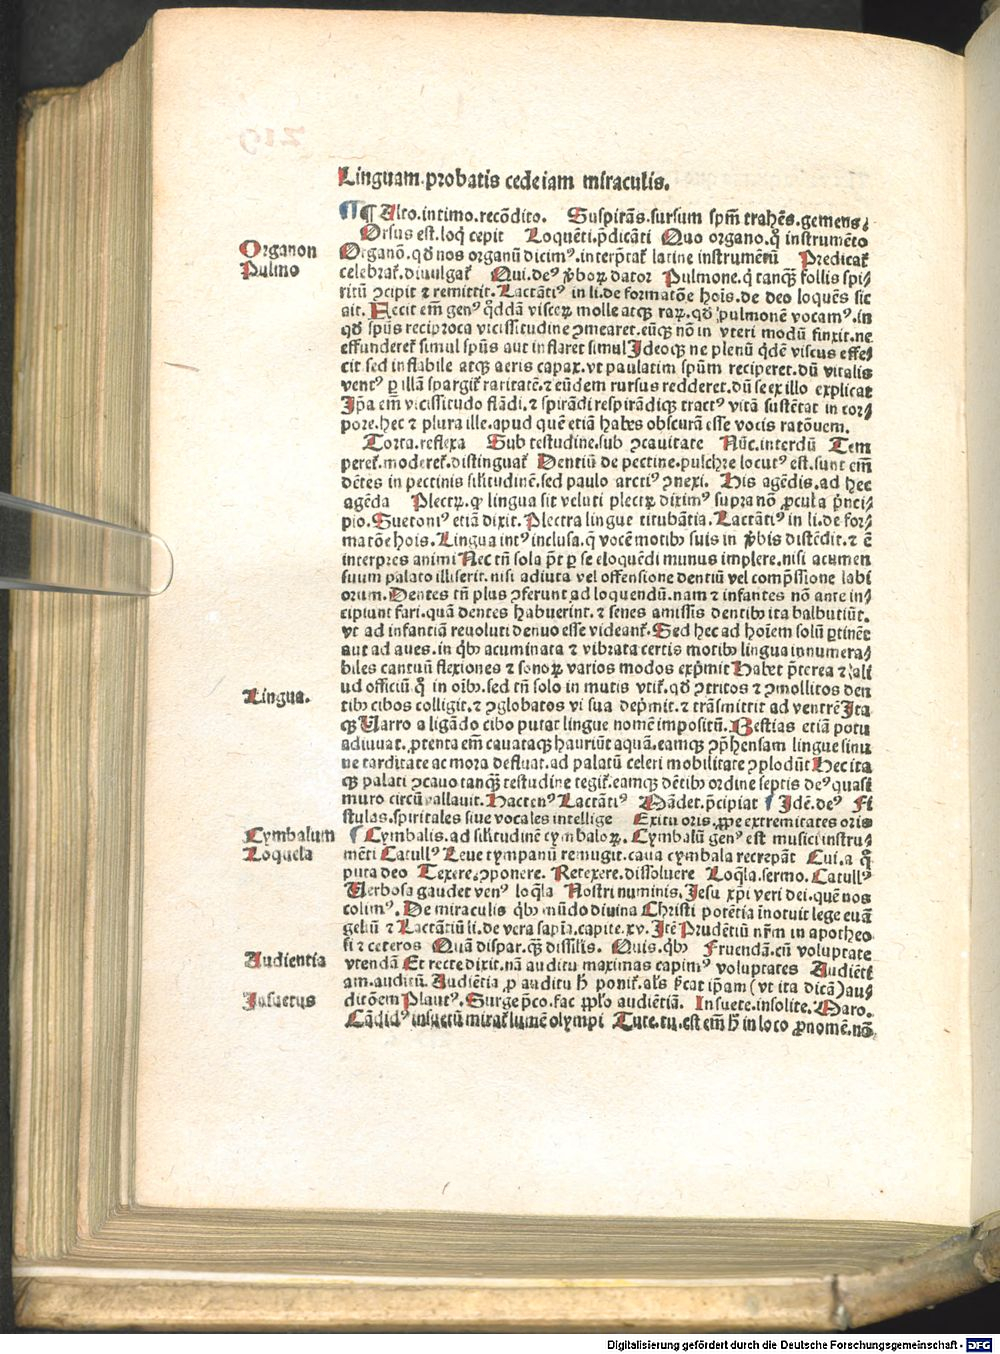 Linguam.probatis cede iam miraculis.
¶ Alto.intimo.recōdito. Suspirās.sursum spm̄ trahēs.gemens⸝
Orsus est.loq̇ cepit Loquēti.p̄dicāti Quo organo.q̊ instrumēto
Organon
Organō.qđ nos organū dicimꝰ.interp̄tat̉ latine instrumentū Predicat̉
Pulmo
celebrat̉.diuulgat̉ Qui.deꝰ v̄boꝝ dator Pulmone.q̇ tanqꝫ follis spi⸗
ritū ꝯcipit ⁊ remittit. Lactātiꝰ in li.de formatōe hois.de deo loquēs sic
ait. Fecit em̄ genꝰ q̊ddā visceꝝ molle atqꝫ raꝝ.qđ pulmonē vocamꝰ.in
qđ spūs reciproca vicissitudine ꝯmearet.eūqꝫ nō in vteri modū finxit.ne
effunderet̉ simul spūs aut inflaret simul Ideoqꝫ ne plenū q̊dē viscus effe⸗
cit sed inflabile atqꝫ aeris capax.vt paulatim spūm reciperet.dū vitalis
ventꝰ ꝑ illā spargit̉ raritatē.⁊ eūdem rursus redderet.dū se ex illo explicat
Ipa em̄ vicissitudo flādi.⁊ spirādi respirādiqꝫ tractꝰ vitā sustētat in cor⸗
pore.hec ⁊ plura ille.apud quē etiā habes obscurā esse vocis ratōnem.
Torta.reflexa Sub testudine.sub ꝯcauitate Nūc.interdū Tem
peret̉.moderet̉.distinguat̉ Dentiū de pectine.pulchre locutꝰ est.sunt em̄
dētes in pectinis sil̉itudinē.sed paulo arctiꝰ ꝯnexi. His agēdis.ad hec
agēda Plectꝝ.q̇ lingua sit veluti plectꝝ diximꝰ supra nō ꝓcula p̄nci⸗
pio. Suetoniꝰ etiā dixit. Plectra lingue titubātia. Lactātiꝰ in li.de for⸗
matōe hois. Lingua intꝰ inclusa.q̇ vocē motibꝫ suis in v̄bis distēdit.⁊ ē
interpres animi Nec tn̄ sola p̄t ꝑ se eloquēdi munus implere.nisi acumen
suum palato illiserit.nisi adiuta vel offensione dentiū vel comp̄ssione labi
orum. Dentes tn̄ plus ꝯferunt ad loquendū.nam ⁊ infantes nō ante in⸗
cipiunt fari.quā dentes habuerint.⁊ senes amissis dentibꝫ ita balbutiūt.
vt ad infantiā reuoluti denuo esse videant̉. Sed hec ad hoīem solū ꝑtinēt
aut ad aues.in q̇bꝫ acuminata ⁊ vibrata certis motibꝫ lingua innumera⸗
biles cantuū flexiones ⁊ sonoꝝ varios modos exp̄mit Habet p̄terea ⁊ ali
Lingua.
ud officiū q̊ in oībꝫ.sed tn̄ solo in mutis vtit̉.qđ ꝯtritos ⁊ ꝯmollitos den
tibꝫ cibos colligit.⁊ ꝯglobatos vi sua dep̄mit.⁊ trāsmittit ad ventrē Ita
qꝫ Varro a ligādo cibo putat lingue nomē impositū. Bestias etiā potu
adiuuat.ꝓtenta em̄ cauataqꝫ hauriūt aquā.eamqꝫ ꝯp̄hensam lingue sinu
ne tarditate ac mora defluat.ad palatū celeri mobilitate ꝯplodūt Hec ita
qꝫ palati ꝯcauo tanqꝫ testudine tegit̉.eamqꝫ dētibꝫ ordine septis deꝰ quasi
muro circūuallauit. Hactenꝰ Lactātiꝰ Mādet.p̄cipiat ¶ Idē.deꝰ Fi
stulas.spiritales siue vocales intellige Exitu oris.ꝓpe extremitates oris
Cymbalum
¶ Cymbalis.ad sil̉itudinē cymbaloꝝ. Cymbalū genꝰ est musici instru⸗
Loquela
mēti Catullꝰ Leue tympanū remugit.caua cymbala recrepāt Cui.a q̊
puta deo Texere.ꝯponere. Retexere.dissoluere Loq̄la.sermo. Catullꝰ
Verbosa gaudet venꝰ loq̄la Nostri numinis. Jesu xp̄i veri dei.quē nos
colimꝰ. De miraculis q̇bꝫ mūdo diuina Christi potētia inotuit lege euā
geliū ⁊ Lactātiū li.de vera sapīa.capite.xv. Itē Prudētiū nr̄m in apotheo
si ⁊ ceteros Quā dispar.qꝫ dissilis. Quis.q̇bꝫ Fruendā.cū voluptate
Audientia
vtendā Et recte dixit.nā auditu maximas capimꝰ voluptates Audiēti
am.auditū. Audiētia ꝓ auditu h̄ ponit̉.als̄ sīcat ip̄am (vt ita dicā) au⸗
Insuetus
ditōem Plautꝰ. Surge p̄co.fac ꝓpl̄o audiētiā. Insuete.insolite. Maro.
Cādidꝰ insuetū mirat̉ lumē olympi Tute.tu.est em̄ h̄ in loco ꝓnomē.nā
Digitalisierung gefördert durch die Deutsche Forschungsgemeinschaft - DFG